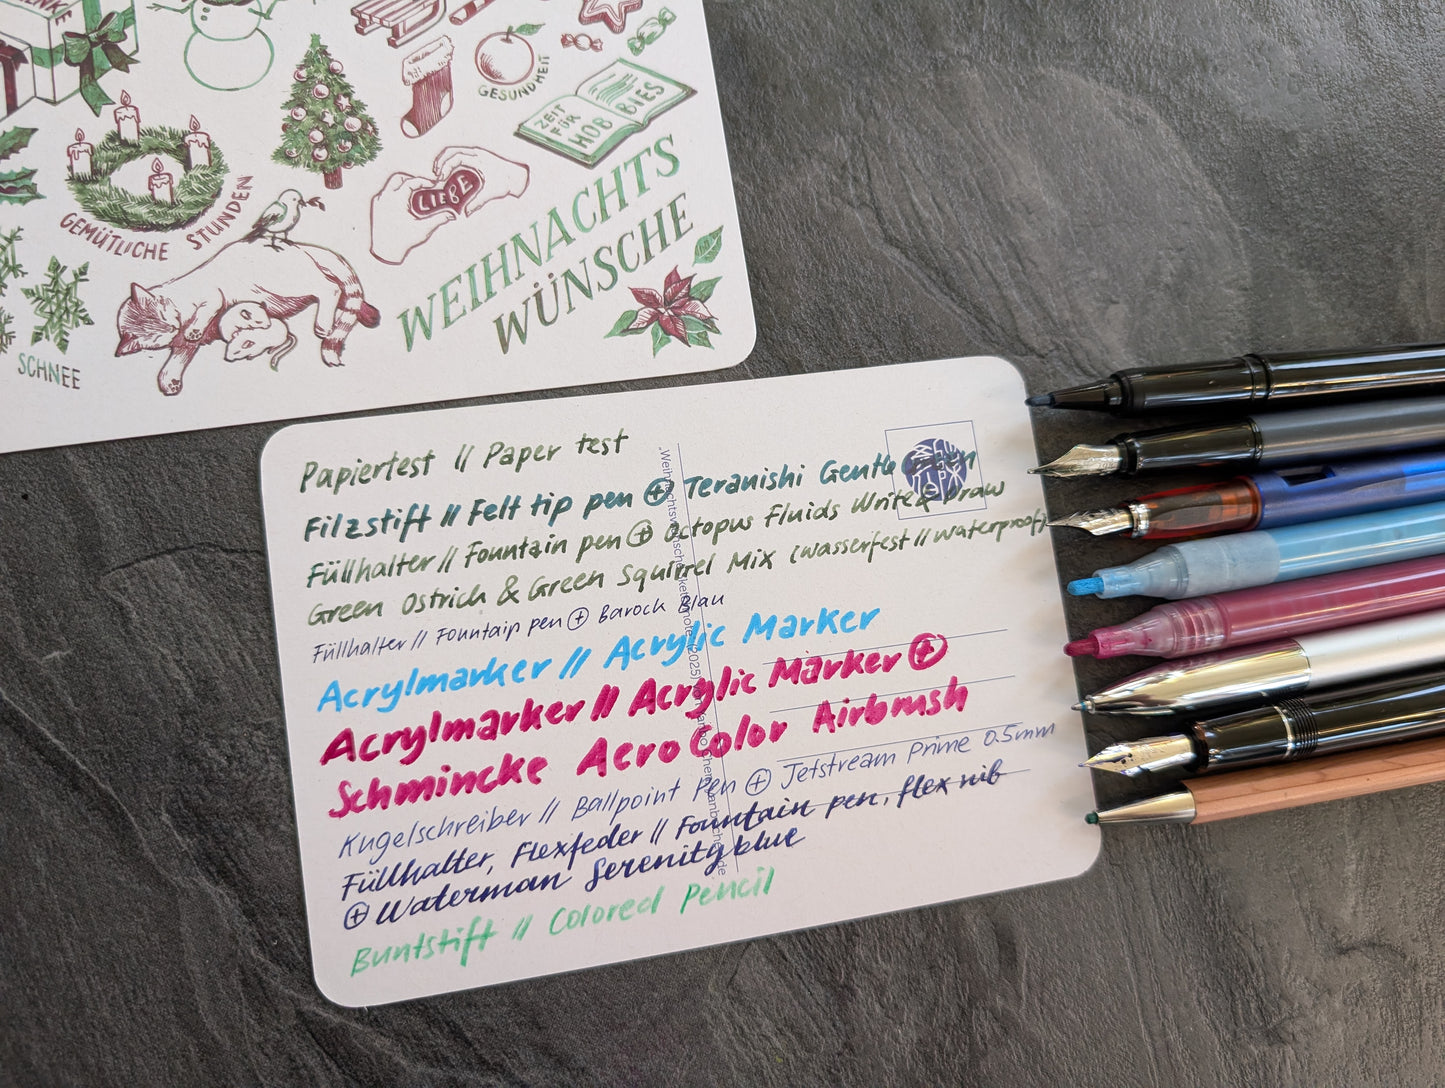 GESUNDHEIT
ZEIT
FÜR
HOB
BIES
LIEBE
GEMÜTLICHE STUNDEN
WEIHNACHTS
WÜNSCHE
SCHNEE
Papiertest // Paper test
Filzstift // Felt tip pen ⊕ Teranishi Gentle
Füllhalter // Fountain pen ⊕ Octopus Fluids Write & Draw
Green Ostrich & Green Squirrel Mix (wasserfest // waterproof)
Füllhalter // Fountain pen ⊕ Barock Blau
Acrylmarker // Acrylic Marker
Acrylmarker // Acrylic Marker ⊕
Schmincke Aero Color Airbrush
Kugelschreiber // Ballpoint Pen ⊕ Jetstream Prime 0.5mm
Füllhalter, Flexfeder // Fountain pen, flex nib
⊕ Waterman Serenity blue
Buntstift // Colored Pencil